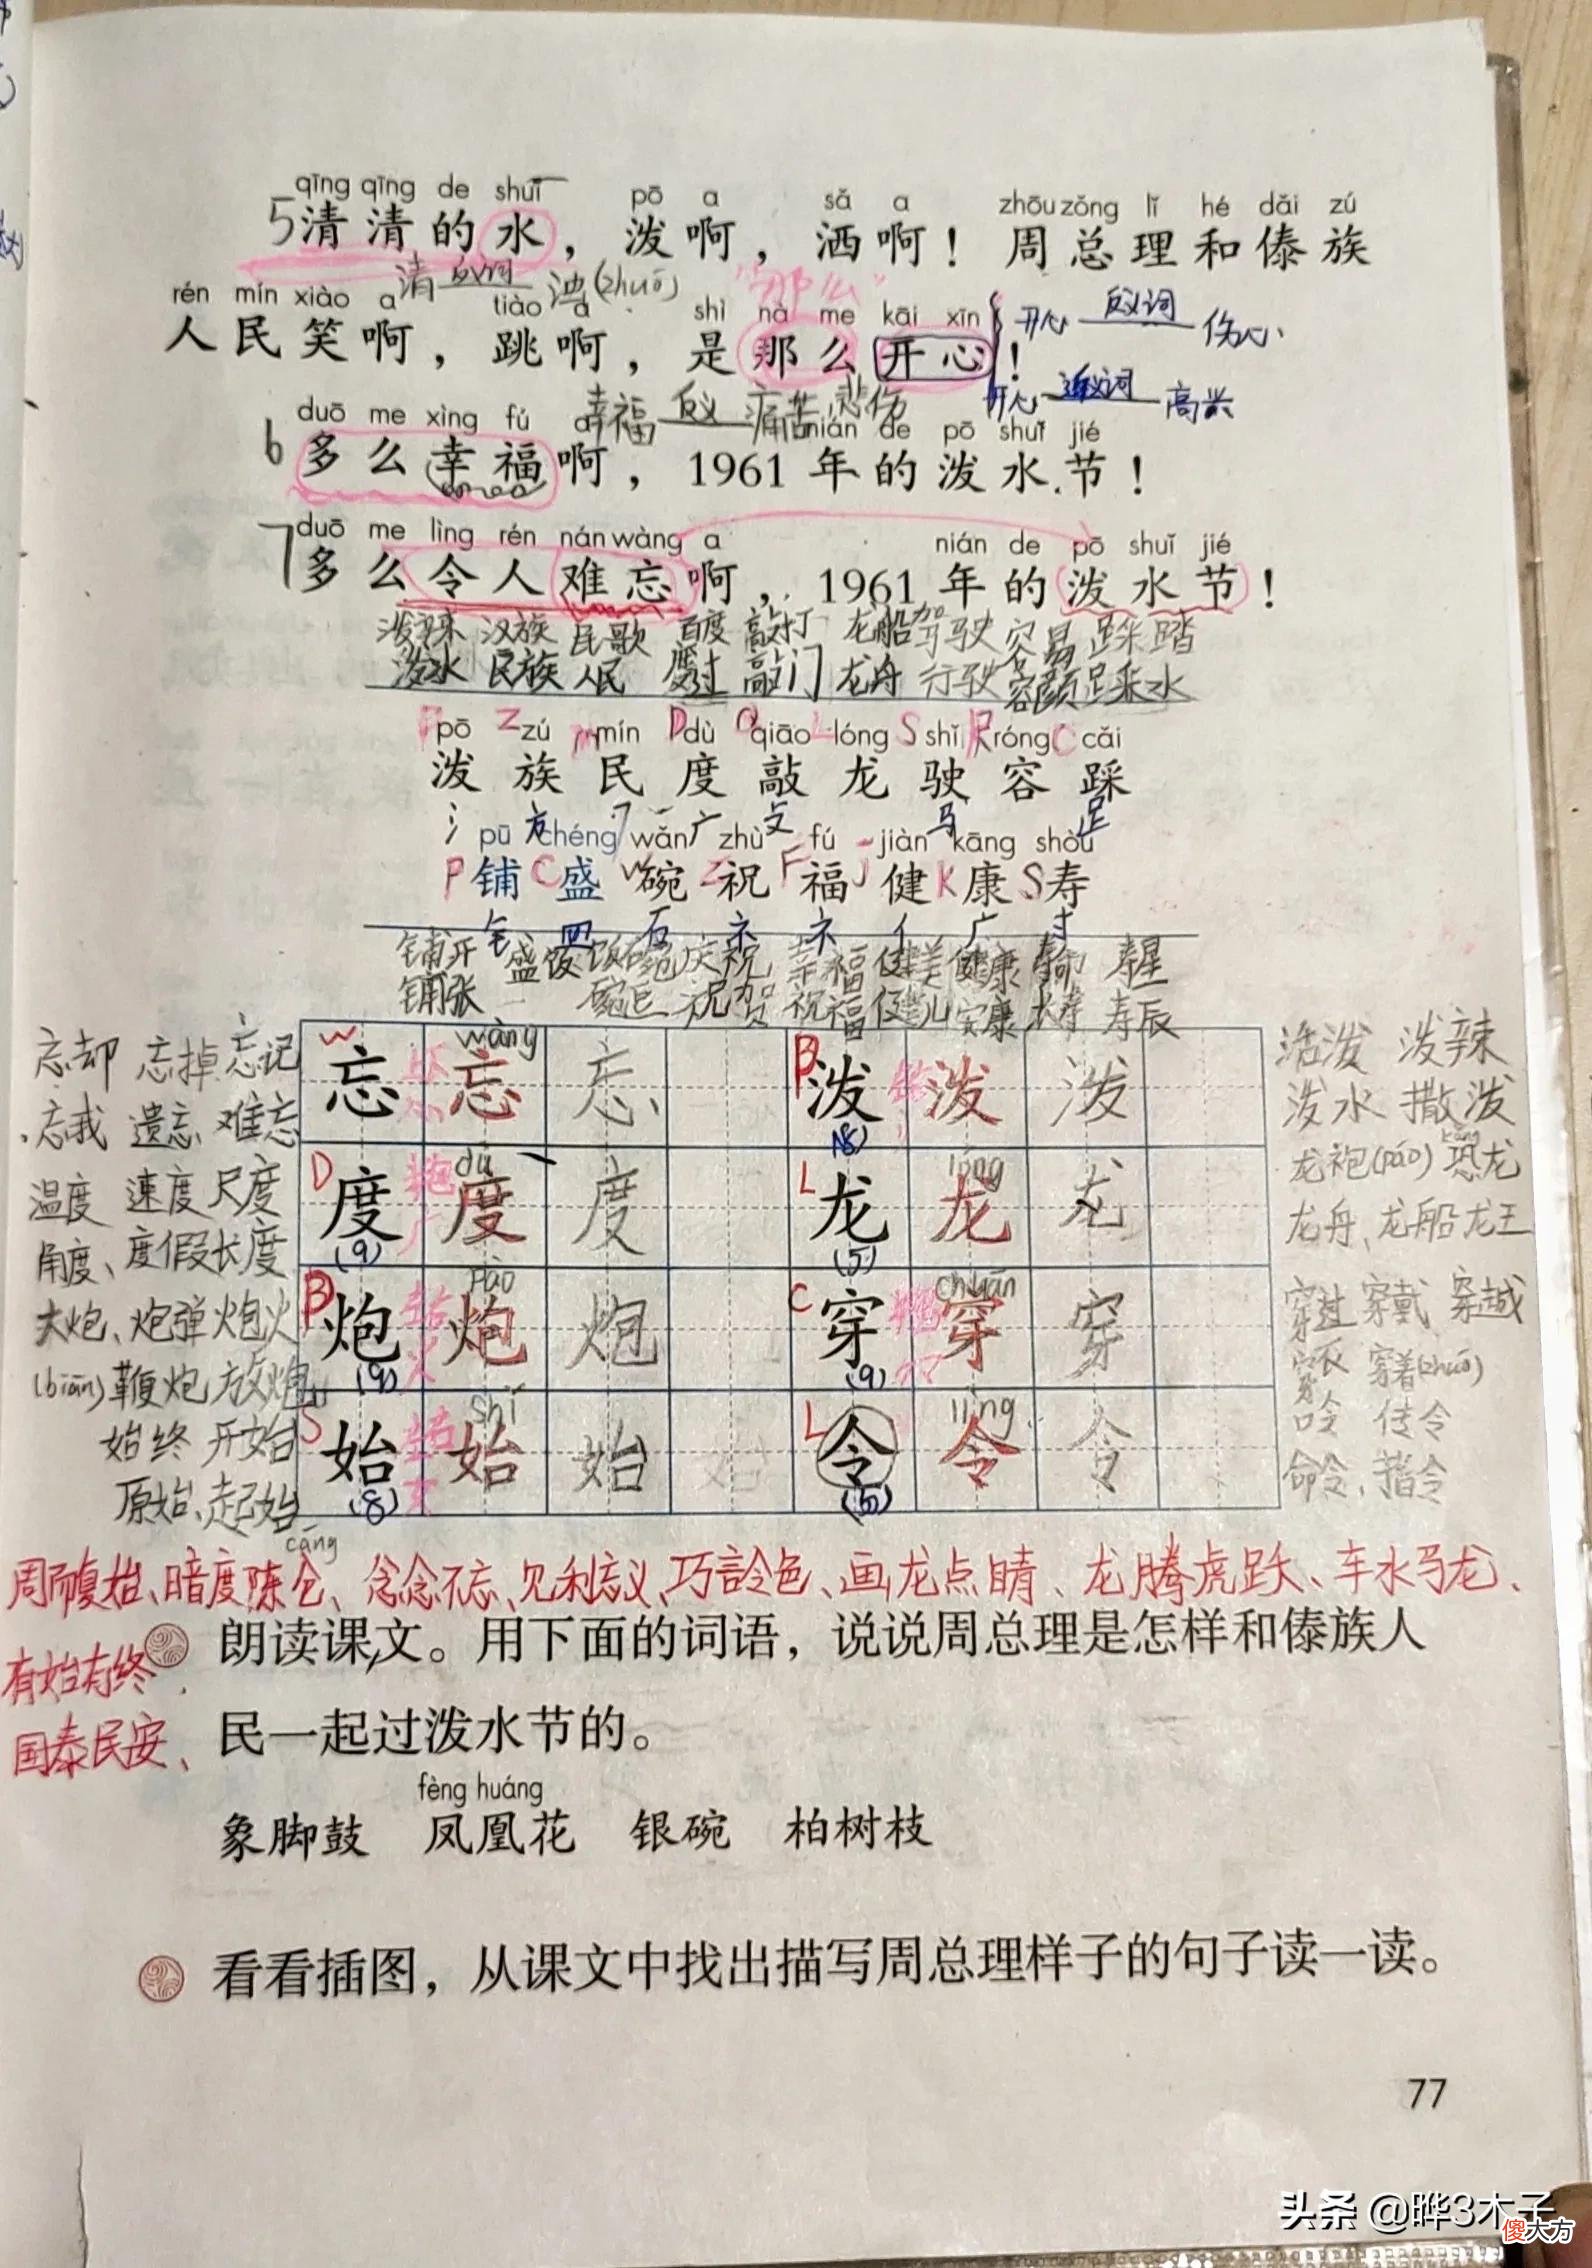 qīng qīng de shuǐ pō a sǎ a zhōu zǒng lǐ hé dǎi zú
5清清的水，泼啊，洒啊！周总理和傣族
清 反义词 浊(zhuó) "那么"
rén mín xiào a tiào a shì nà me kāi xīn
人民笑啊，跳啊，是那么开心！
开心 反义词 伤心
开心 近义词 高兴
幸福 反义 痛苦 悲伤
duō me xìng fú a nián de pō shuǐ jié
6多么幸福啊，1961年的泼水节！
duō me lìng rén nán wàng a nián de pō shuǐ jié
7多么令人难忘啊，1961年的泼水节！
泼辣 汉族 民歌 百度 敲打 龙船 驾驶 容易 踩踏
泼水 民族 人民 度过 敲门 龙舟 行驶 容颜 踩水
P pō Z zú m mín D dù Q qiāo L lóng S shǐ R róng C cǎi
泼 族 民 度 敲 龙 驶 容 踩
氵 方 广 攴 马 足
pū chéng wǎn zhù fú jiàn kāng shòu
P铺 C盛 W碗 Z祝 F福 J健 K康 S寿
钅 皿 石 礻 礻 亻 广 寸
铺开 盛饭 饭碗 庆祝 幸福 健美 健康 寿命 寿星
铺张 祝贺 祝福 健儿 安康 寿辰
忘却 忘掉 忘记 W 忘 wàng 忘 忘 B 泼 泼 泼 活泼 泼辣
忘我 遗忘 难忘 (8) 泼水 撒泼
温度 速度 尺度 D 度 dù 度 度 L 龙 lóng 龙 龙 龙袍(páo) kǒng 恐龙
角度、度假 长度 (9) (5) 龙舟、龙船 龙王
大炮、炮弹 炮火 B 炮 pào 炮 炮 C 穿 chuān 穿 穿 穿过 穿戴 穿越
(biān)鞭炮 放炮 (9) (9) 穿衣 穿着(zhuó)
始终 开始 S 始 shǐ 始 始 L 令 lìng 令 令 口令 传令
原始、起始 (8) (5) 命令、指令
cāng
周而复始、暗度陈仓、念念不忘、见利忘义、巧言令色、画龙点睛、龙腾虎跃、车水马龙、
有始有终、
国泰民安、
朗读课文。用下面的词语，说说周总理是怎样和傣族人
民一起过泼水节的。
fèng huáng
象脚鼓 凤凰花 银碗 柏树枝
看看插图，从课文中找出描写周总理样子的句子读一读。
77
头条 @晔3木子
傻大方